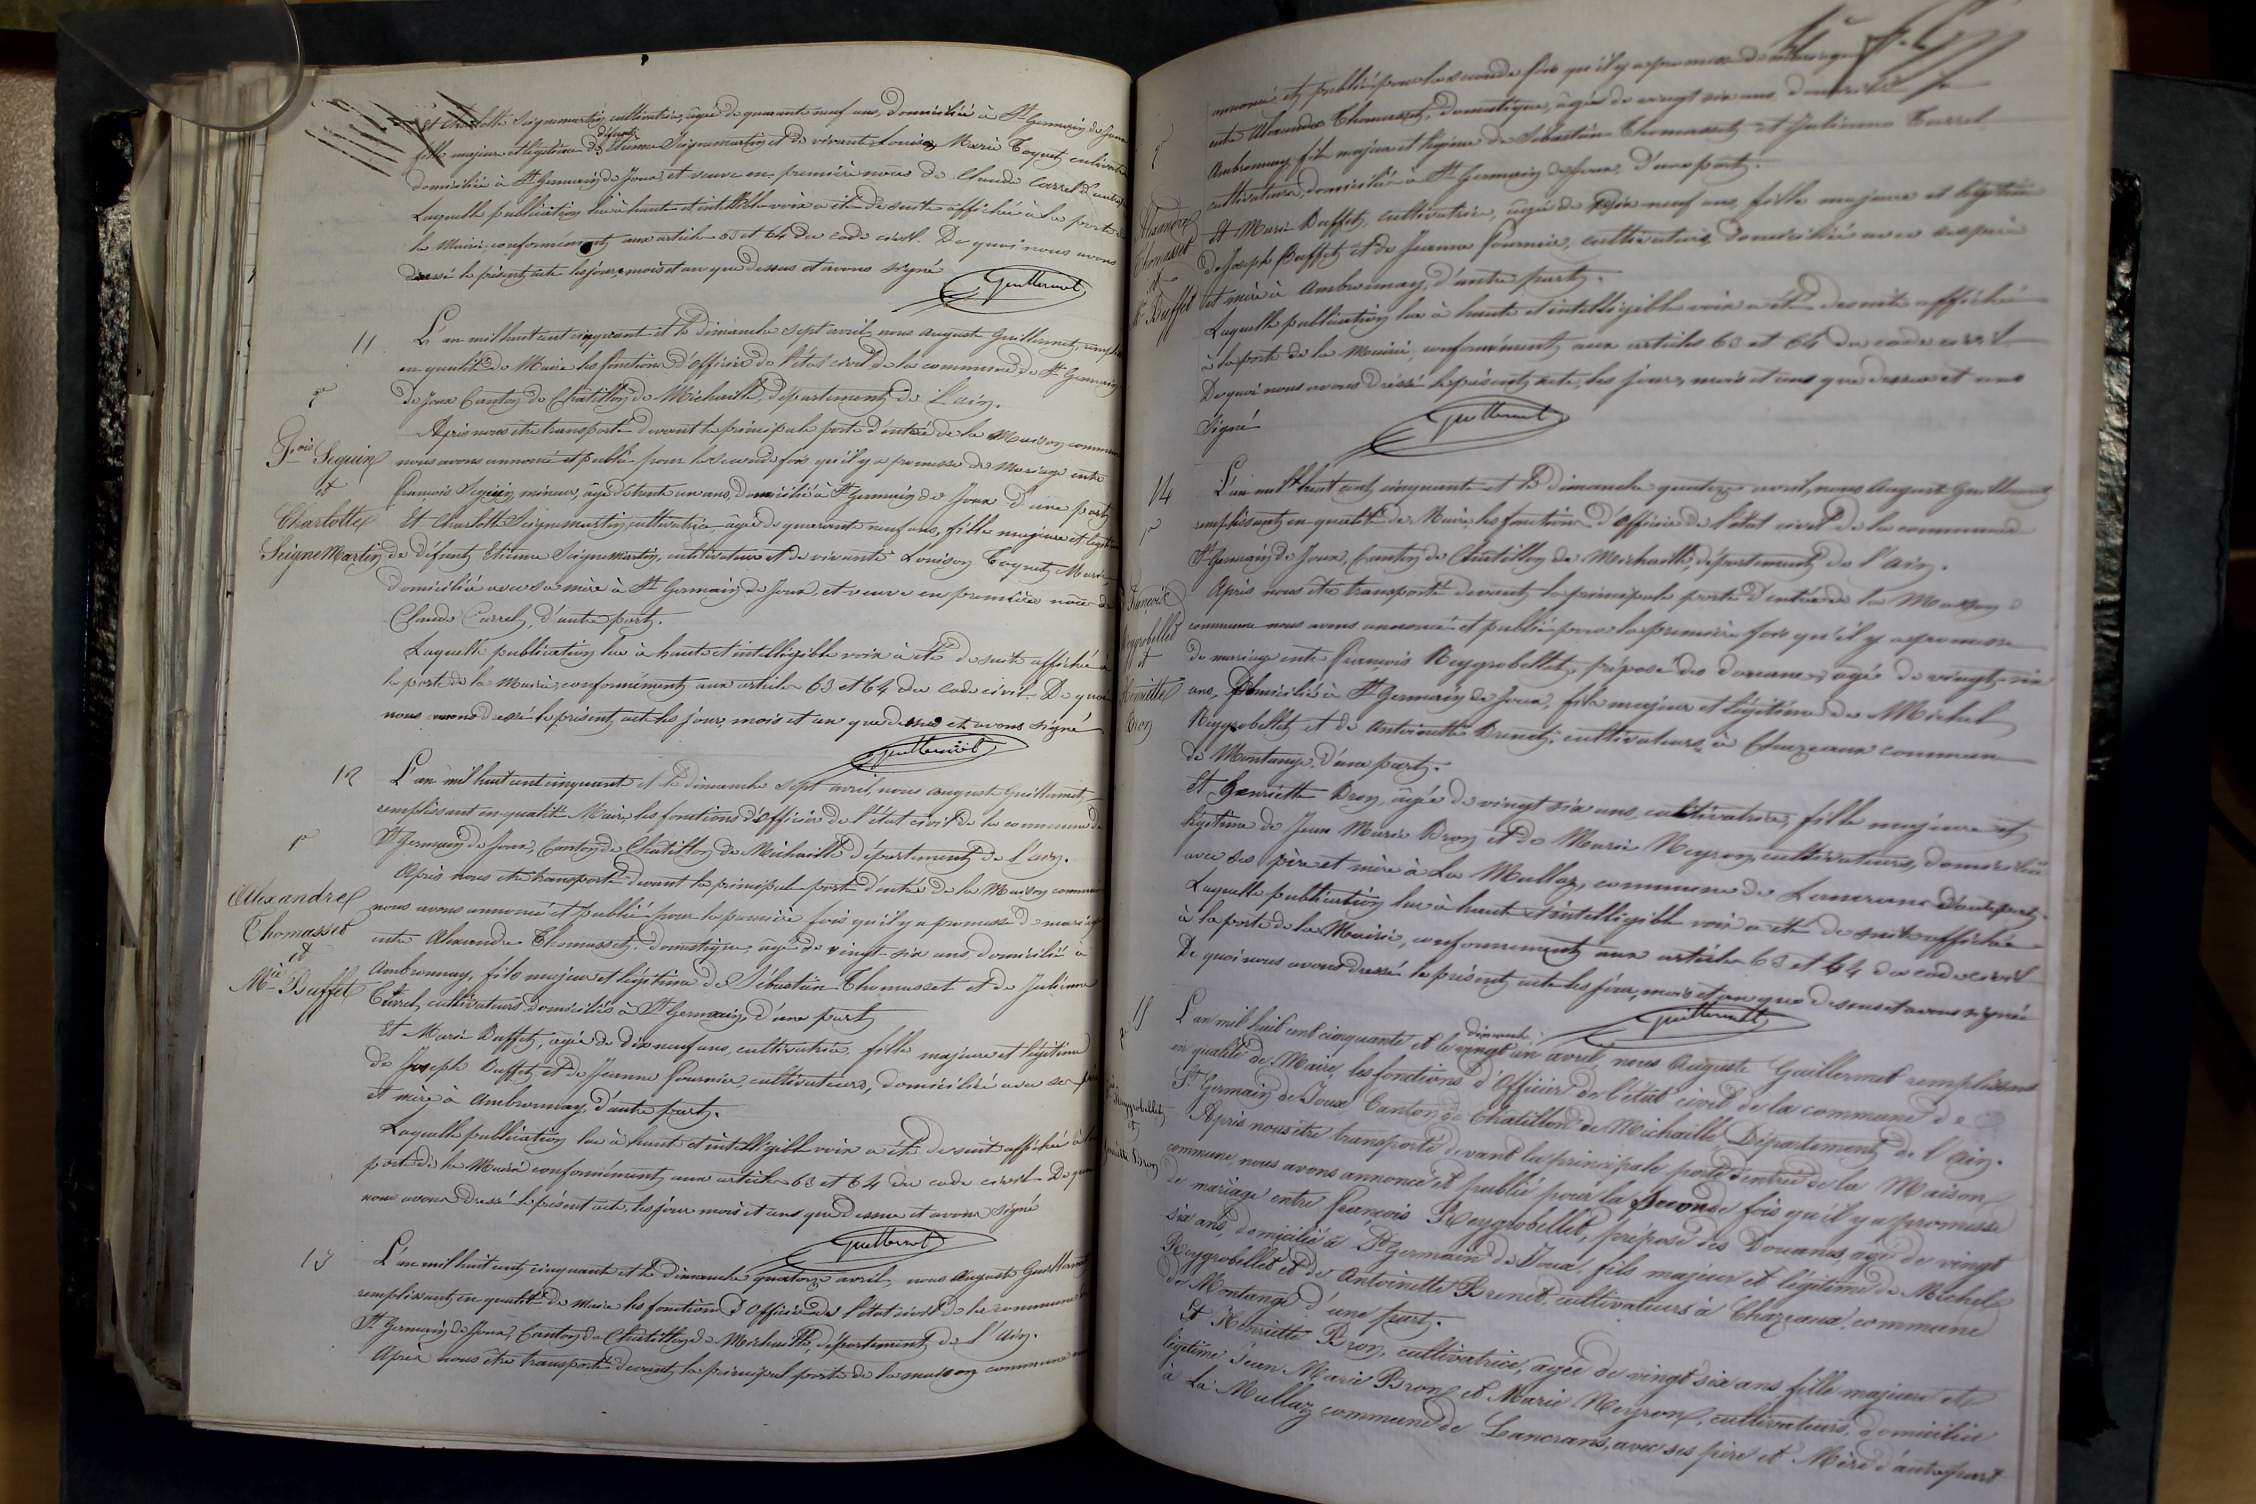 Et Charlotte Seignemartin, cultivatrice, âgée de quarante neuf ans, domiciliée à St Germain de Joux
fille majeure et légitime de défunt Etienne Seignemartin et de vivante Louison Marie Coquet, cultivatrice
domiciliée à St Germain de Joux, et veuve en première noce de Claude Carrel d'autre
Laquelle publication lue à haute et intelligible voix a été de suite affichée à la porte de
la Mairie, conformément aux articles 63 et 64 du code civil. De quoi nous avons
dressé le présent acte les jour, mois et an que dessus et avons signé
Guillermet
11
L'an mil huit cent cinquant et le dimanche sept avril, nous Auguste Guillermet, rempliss
en qualité de Maire les fonctions d'officier de l'état civil de la commune de St Germain
de Joux Canton de Châtillon de Michaille, département de l'ain.
Après nous être transporté devant la principale porte d'entrée de la Maison commune
nous avons annoncé et publié pour la seconde fois qu'il y a promesse de Mariage entre
François Seguin, mineur, âgé de trente un ans, domicilié à St Germain de Joux d'une part
Et Charlotte Seignemartin, cultivatrice âgée de quarante neuf ans, fille majeure et légitime
de défunt Etienne Seignemartin, cultivateur et de vivante Louison Coquet, Marie
domiciliée avec sa mère à St Germain de Joux, et veuve en première noce de
Claude Carrel, d'autre part.
Laquelle publication lue à haute et intelligible voix à été de suite affichée à
la porte de la Mairie, conformément aux articles 63 et 64 du Code civil. De quoi
nous avons dressé le présent acte les jour, mois et an que dessus et avons signé
Fçois Seguin
et
Charlotte
Seigne Martin
Guillermet
12
L'an mil huit cent cinquante et le dimanche sept avril, nous Auguste Guillermet,
remplissant en qualité Maire, les fonctions d'officier de l'état civil de la commune de
St Germain de Joux, Canton de Chatillon de Michaille département de l'ain.
Après nous être transporté devant la principale porte d'entrée de la Maison commune
nous avons annoncé et publié pour la première fois qu'il y a promesse de mariage
entre Alexandre Thomasset, domestique, âgé de vingt-six ans domicilié à
Ambronnay, fils majeur et légitime de Sébastien Thomasset et de Julienne
Carrel, cultivateurs domiciliés à St Germain, d'une part
Et Marie Buffet, âgée de dix neuf ans, cultivatrice, fille majeure et légitime
de Joseph Buffet et de Jeanne Fournier, cultivateurs, domiciliée avec ses père
et mère à Ambronnay, d'autre part.
Laquelle publication lue à haute et intelligible voix a été de suite affichée à la
porte de la Mairie conformément aux articles 63 et 64 du code civil. De quoi
nous avons dressé le présent acte, les jour mois et ans que dessus et avons signé
Alexandre
Thomasset
et
Mie Buffet
Guillermet
13
L'an mil huit cent cinquante et le dimanche quatorze avril, nous Auguste Guillermet
remplissant en qualité de Maire les fonctions d'officier de l'état civil de la commune
St Germain de Joux, Canton de Chatillon de Michaille, département de l'ain.
Après nous être transporté devant la principal porte de la maison commune
annoncé et publié pour la seconde fois qu'il y a promesse de mariage
entre Alexandre Thomasset, domestique, âgé de vingt six ans domicilié
Ambronnay, fils majeur et légitime de Sébastien Thomasset et Julienne Carrel
cultivateurs, domiciliés à St Germain de Joux, d'une part.
Et Marie Buffet, cultivatrice, âgée de dix neuf ans, fille majeure et légitime
de Joseph Buffet et de Jeanne Fournier, cultivateurs domiciliée avec ses père
et mère à Ambronnay, d'autre part.
Laquelle publication lue à haute et intelligible voix a été de suite affichée
à la porte de la Mairie, conformément aux articles 63 et 64 du code civil
De quoi nous avons dressé le présent acte, les jour, mois et ans que dessus et avons
signé
Alexandre
Thomasset
et
Mie Buffet
Guillermet
14
L'an mil huit cent cinquante et le dimanche quatorze avril, nous Auguste Guillermet
remplissant en qualité de Maire, les fonctions d'officier de l'état civil de la commune
St Germain de Joux, Canton de Chatillon de Michaille, département de l'ain.
Après nous être transporté devant la principale porte d'entrée de la Maison
commune nous avons annoncé et publié pour la première fois qu'il y a promesse
de mariage entre François Reygrobellet, préposé des douanes, agé de vingt-six
ans, domicilié à St Germain de Joux, fils majeur et légitime de Michel
Reygrobellet et de Antoinette Brunet, cultivateurs à Charzeaux commune
de Montange, d'une part.
Et Henriette Bron, âgée de vingt six ans, cultivatrice, fille majeure et
légitime de Jean Marie Bron et de Marie Neyron, cultivateurs, domiciliée
avec ses père et mère à La Mullaz, commune de Lancrans d'autre part.
Laquelle publication lue à haute et intelligible voix a été de suite affichée
à la porte de la Mairie, conformément aux articles 63 et 64 du code civil
De quoi nous avons dressé le présent acte les jour, mois et an que dessus et avons signé
François
Reygrobellet
et
Henriette
Bron
Guillermet
15
L'an mil huit cent cinquante et le dimanche vingt un avril, nous Auguste Guillermet remplissant
en qualité de Maire, les fonctions d'Officier de l'état civil de la commune de
St Germain de Joux Canton de Chatillon de Michaille, Département de l'ain.
Après nous être transporté devant la principale porte d'entrée de la Maison
commune, nous avons annoncé et publié pour la seconde fois qu'il y a promesse
de mariage entre François Reygrobellet, préposé des Douanes, agé de vingt
six ans, domicilié à St Germain de Joux, fils majeur et légitime de Michel
Reygrobellet et de Antoinette Brunet, cultivateurs à Charzeaux, commune
de Montange d'une part.
Et Henriette Bron, cultivatrice, âgée de vingt six ans, fille majeure et
légitime Jean Marie Bron et Marie Neyron, cultivateurs, domiciliée
à La Mullaz commune de Lancrans, avec ses père et Mère d'autre part
Reygrobellet
et
Henriette Bron